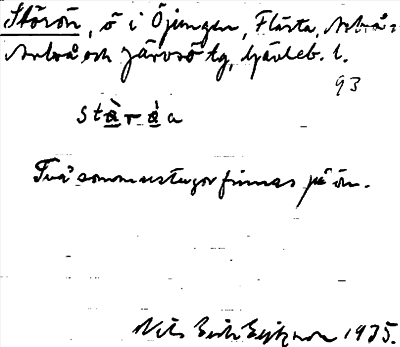 Störön, ö i Öjungen, Flästa, Arbrå:
Arbrå och Järvsö tg, Gävleb. l.
93
stàràa
Två sommarstugor finnas på ön.
Nils Erik Eriksson 1935.